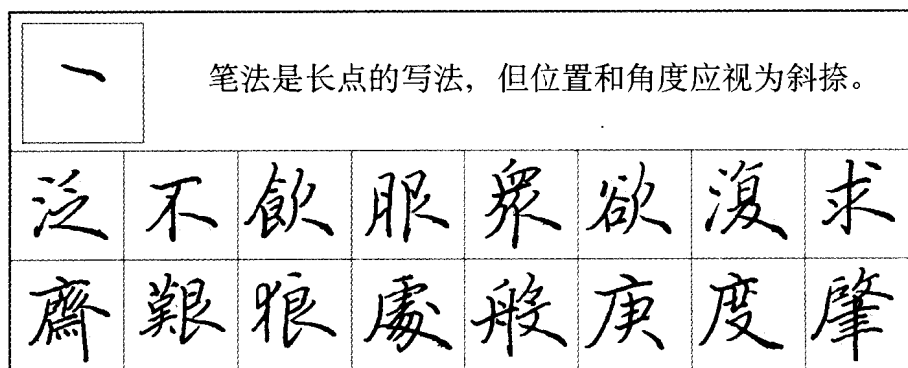 笔法是长点的写法，但位置和角度应视为斜捺。
泛不飲眼眾欲復求
齋艱狼處般庚度肇